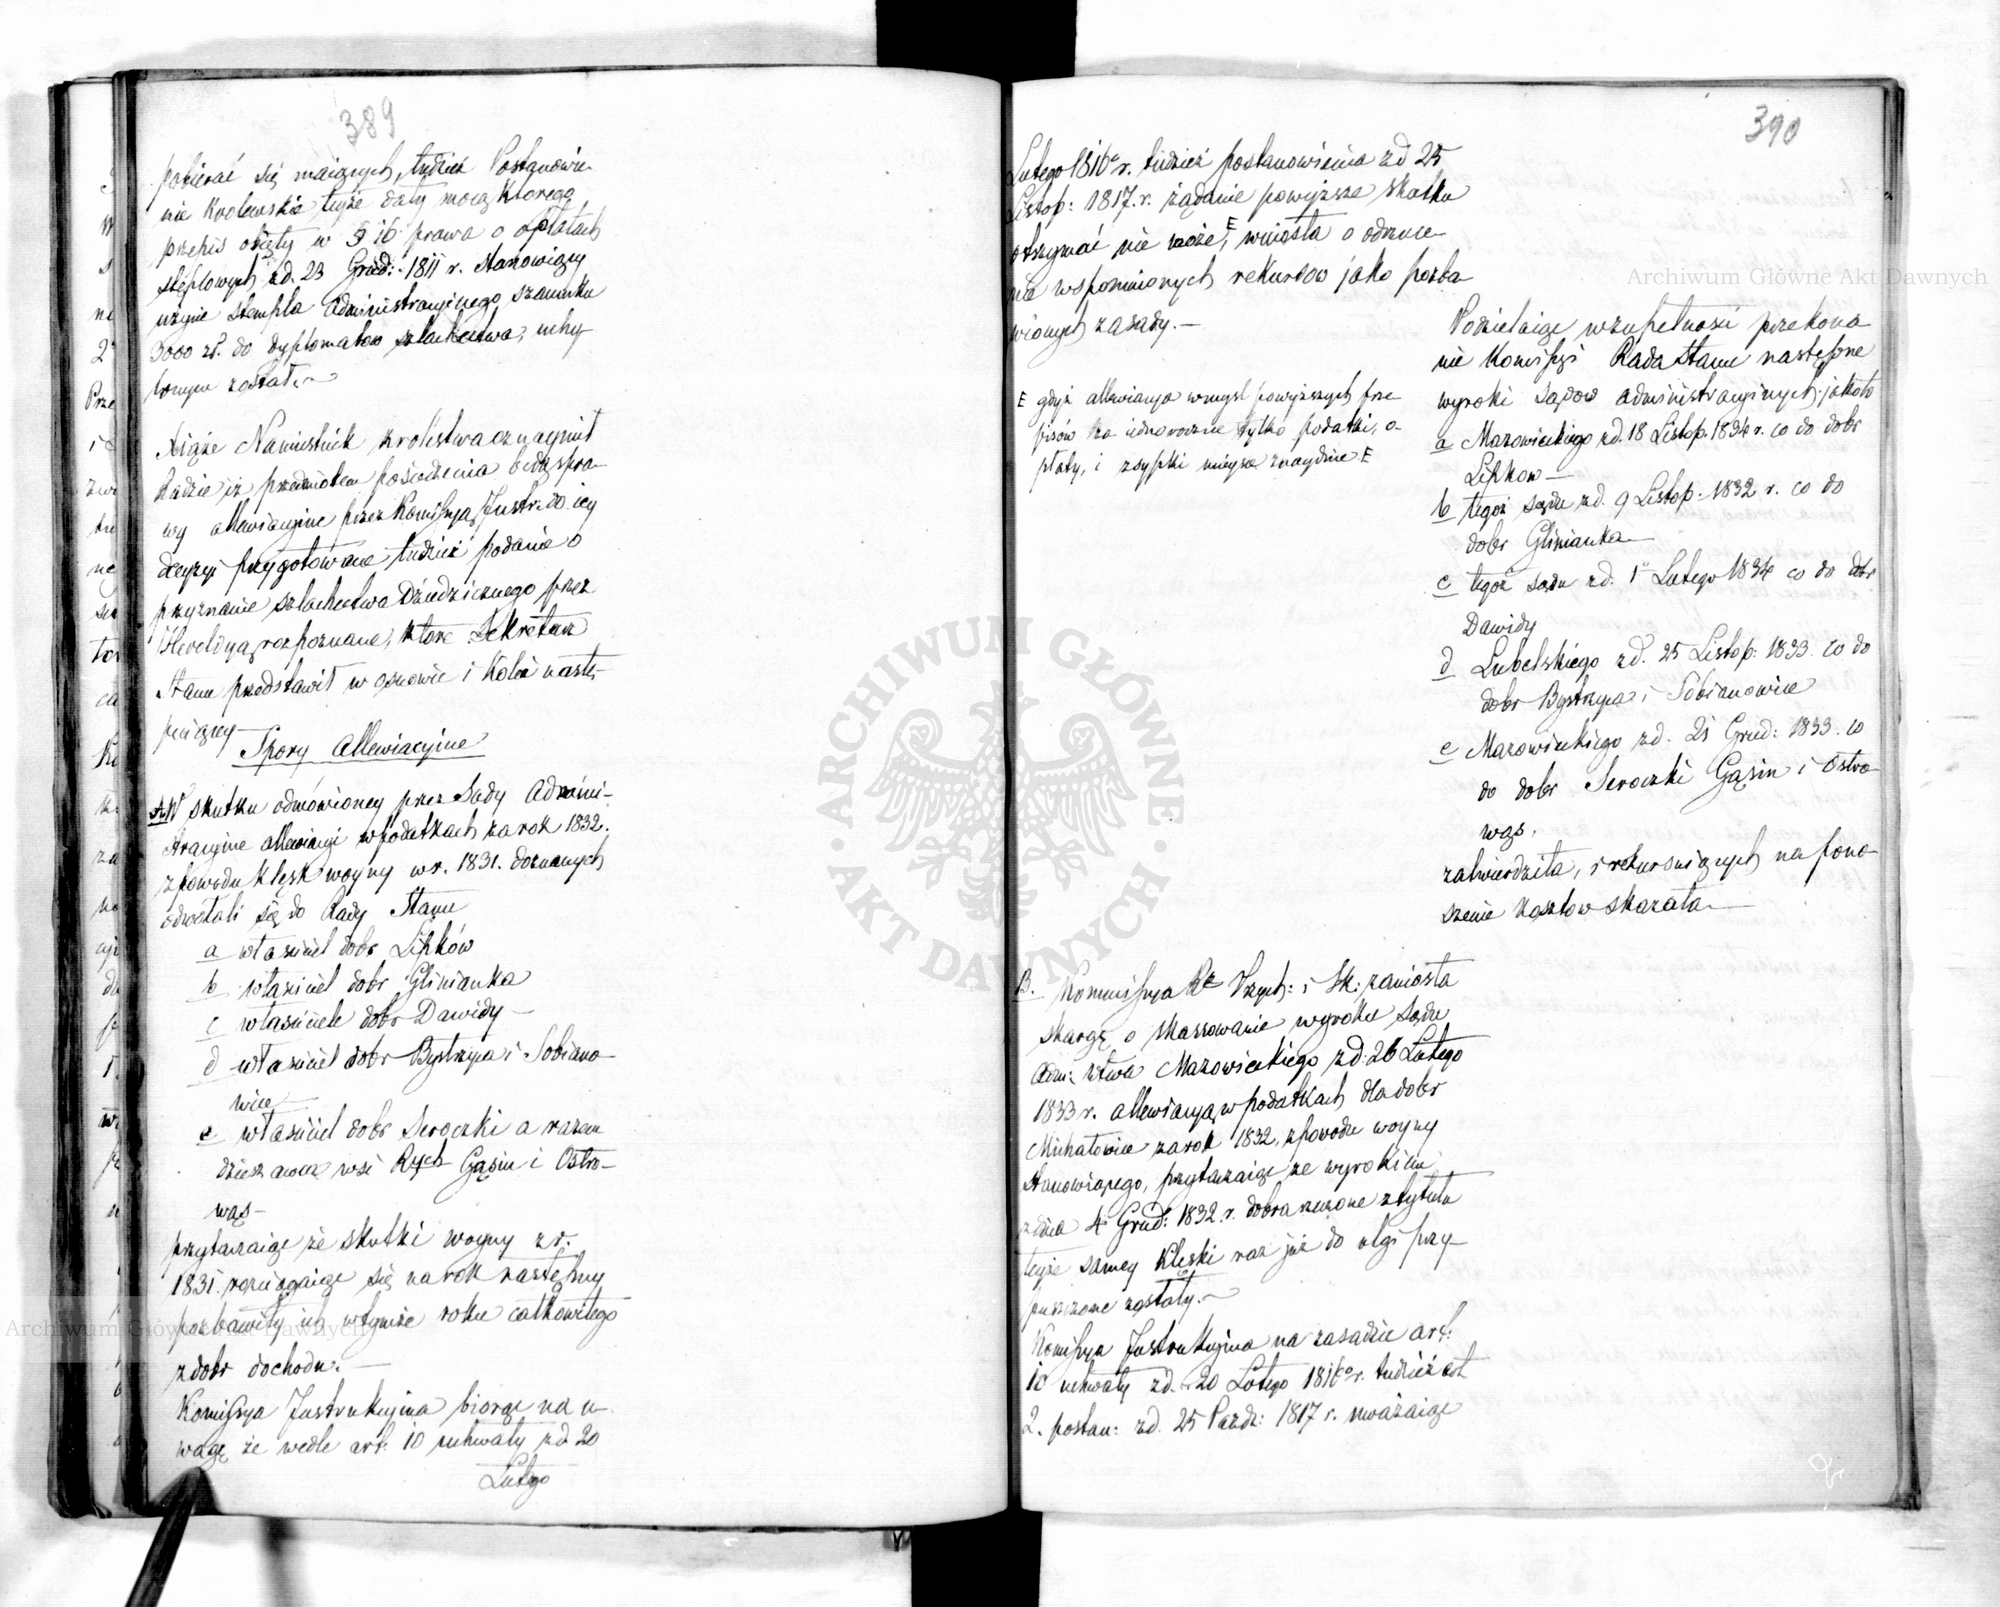 389
pobierać się maiących, tudzież Postanowie-
nie Królewskie teyże daty mocą którego
przepis obięty w § 16 prawa o opłatach
stęplowych zd. 23 Grud: 1811 r. stanowiący
użycie stempla administracyjnego szacunku
3000 zł. do dyplomatów szlachectwa, uchy-
lonym został.
Xiąże Namiestnik Królestwa oznaymił
Radzie iż przedmiotem posiedzenia będą spra-
wy allewiacyjne przez Komissyą Instr: do iey
decyzyi przygotowane tudzież podanie o
przyznanie szlachectwa dziedzicznego przez
Heroldyą rozpoznane, które Sekretarz
Stanu przedstawił w osnowie i kolei nastę-
puiącey
Spory allewiacyine
A. W skutku odmówioney przez Sądy Admini-
stracyine allewiacyi w podatkach za rok 1832.
z powodu klęsk woyny w r. 1831. doznanych
odwołali się do Rady Stanu
a właściciel dóbr Lipków
b właściciel dóbr Glinianka
c właściciele dóbr Dawidy
d właściciel dóbr Bystrzyca i Sobiano-
wice
e właściciel dóbr Seroczki a razem
dzierżawca wsi Rząd. Gąsin i Ostro-
wąs
przytaczaiąc że skutki woyny z r.
1831. rozciągaiąc się na rok następny
pozbawiły ich w tymże roku całkowitego
z dóbr dochodu.
Komissya Instrukcyina biorąc na u-
wagę że wedle art: 10 uchwały zd 20
Lutego
390
Lutego 1816 r. tudzież postanowienia zd 25
Listop: 1817. r. żądanie powyższe skutku
otrzymać nie może, E wniosła o odrzuce-
nie wspomnionych rekursów jako pozba-
wionych zasady.
E gdyż allewiacya w myśl powyższych prze-
pisów za iednoroczne tylko podatki, o-
płaty, i zsypki mieysce znayduie E
Podzielaiąc w zupełności przekona-
nie Komissyi Rada Stanu następne
wyroki Sądów administracyinych jakoto
a Mazowieckiego zd. 18 Listop. 1834 r. co do dóbr
Lipków
b tegoż sądu zd. 9 Listop. 1832 r. co do
dóbr Glinianka
c tegoż sądu zd. 1o Lutego 1834 co do dóbr
Dawidy
d Lubelskiego zd. 25 Listop: 1833. co do
dóbr Bystrzyca i Sobianowice
e Mazowieckiego zd. 21 Grud: 1833. co
do dóbr Seroczki Gąsin i Ostro-
wąs,
zatwierdziła, i rekursuiących na pono-
szenie kosztów skazała
B. Komissya Rz Przych: i Sk: zaniosła
skargę o skassowanie wyroku Sądu
Adm: wztwa Mazowieckiego zd. 26 Lutego
1833 r. allewiacyą w podatkach dla dóbr
Michałowice za rok 1832, z powodu woyny
stanowiącego, przytaczaiąc że wyrokiem
z dnia 4 Grud: 1832. r. dobra rzeczone z tytułu
teyże samey klęski raz już do ulgi przy-
puszczone zostały.
Komissya Instrukcyina na zasadzie art:
10 uchwały zd. 20 Lutego 1816 r. tudzież art
2. postan: zd. 25 Paźdz: 1817 r. uważaiąc
Archiwum Główne Akt Dawnych
ARCHIWUM GŁÓWNE · AKT DAWNYCH ·
Archiwum Główne Akt Dawnych